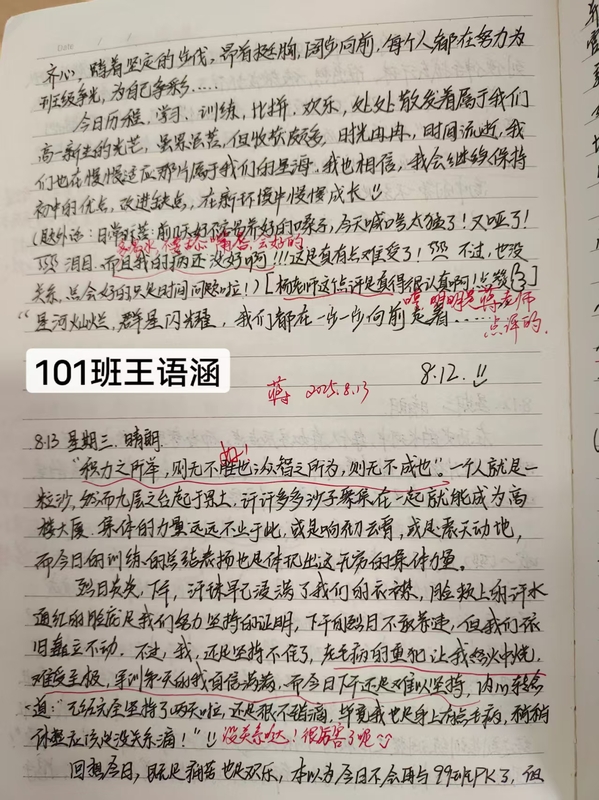 Date
齐心，随着坚定的步伐，昂首挺胸，阔步向前，每个人都在努力为
班级争光，为自己争彩……
今日历程，学习，训练，比拼，欢乐，处处散发着属于我们
高一新生的光芒，虽累虽苦，但收获颇多，时光冉冉，时间流逝，我
们也在慢慢适应那片属于我们的星海，我也相信，我会继续保持
初中的优点，改进缺点，在新环境中慢慢成长
(题外话：日常 前几天好不容易养好的嗓子，今天喊口号太猛了！又哑了！
多喝水 会好的
泪目.而且我的病还没好啊!!!这是真有点难受了! 不过，也没
关系，总会好的只是时间问题啦！)[杨老师这点评是真得很认真啊!点赞]
嘿 明明是蒋老师
点评的.
“星河灿烂，群星闪耀，我们都在一步一步向前走着……
101班王语涵
8.12.
蒋 2025.8.13
8.13 星期三. 晴朗.
“积力之所举，则无不胜也；众智之所为，则无不成也”。一个人就是一
粒沙，然而九层之台起于累土，许许多多沙子聚集在一起就能成为高
楼大厦.集体的力量远远不止于此，或是响彻云霄，或是震天动地，
而今日的训练的总结表扬也是体现出这无穷的集体力量。
烈日炎炎，下午，汗珠早已浸满了我们的衣襟，脸颊上的汗水
通红的脸庞是我们努力坚持的证明，下午的烈日不敢怠慢，但我们依
旧矗立不动.不过，我，还是坚持不住了，老毛病的重犯让我怒火中烧，
难受至极，军训 天的我自信满满，而今日下午还是难以坚持，内心 念
道:“无 完全坚持了两天啦，还是很不错滴，毕竟我也是身上有点毛病，稍稍
休整应该是没关系滴！”
没关系哒！很厉害了呢
回想今日，既是痛苦也是欢乐，本以为今日不会再与99班PK了，但